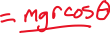 = mgrcosθ